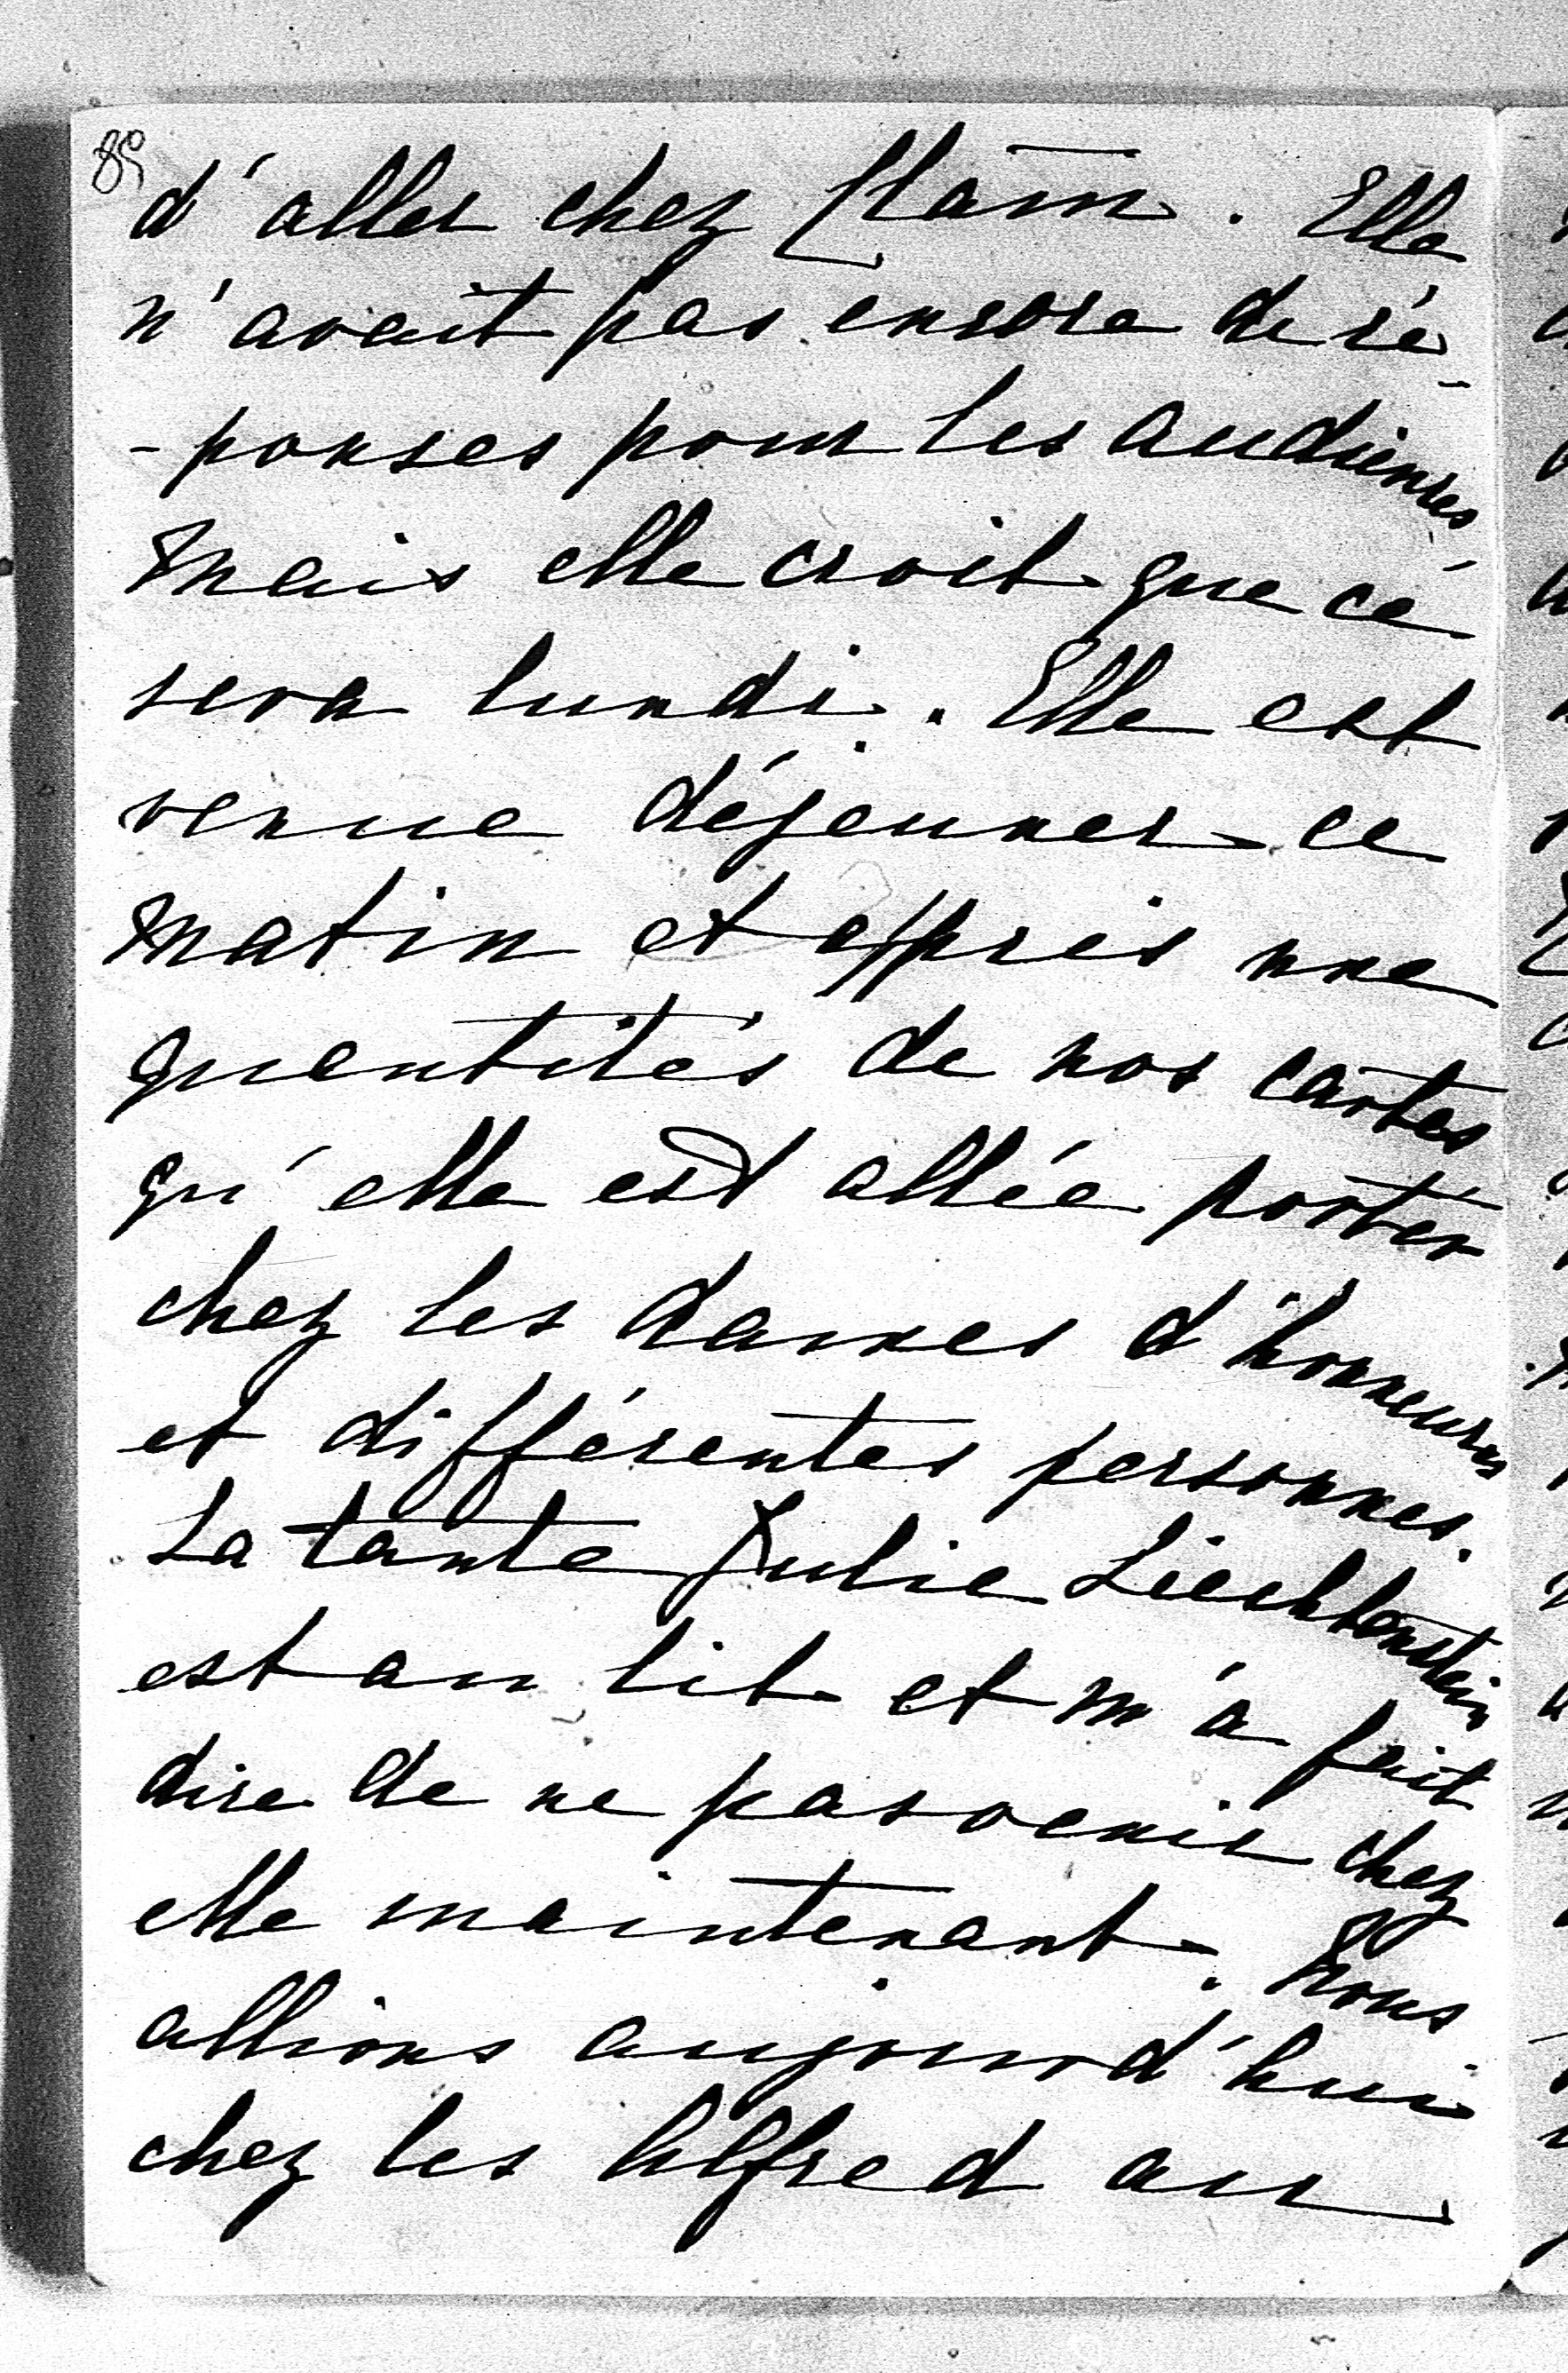 89
d'aller chez Ham̄. Elle
n'avait pas encore de ré-
-ponses pour les audiences
mais elle croit que ce
sera lundi. Elle est
venue déjeuner ce
matin et a pris une
quantités de nos cartes
qu'elle est allée porter
chez les dames d'honneurs
et différentes personnes.
La tante Julie Liechtenstein
est au lit et m'a fait
dire de ne pas venir chez
elle maintenant. Nous
allions aujourd'hui
chez les Alfred au